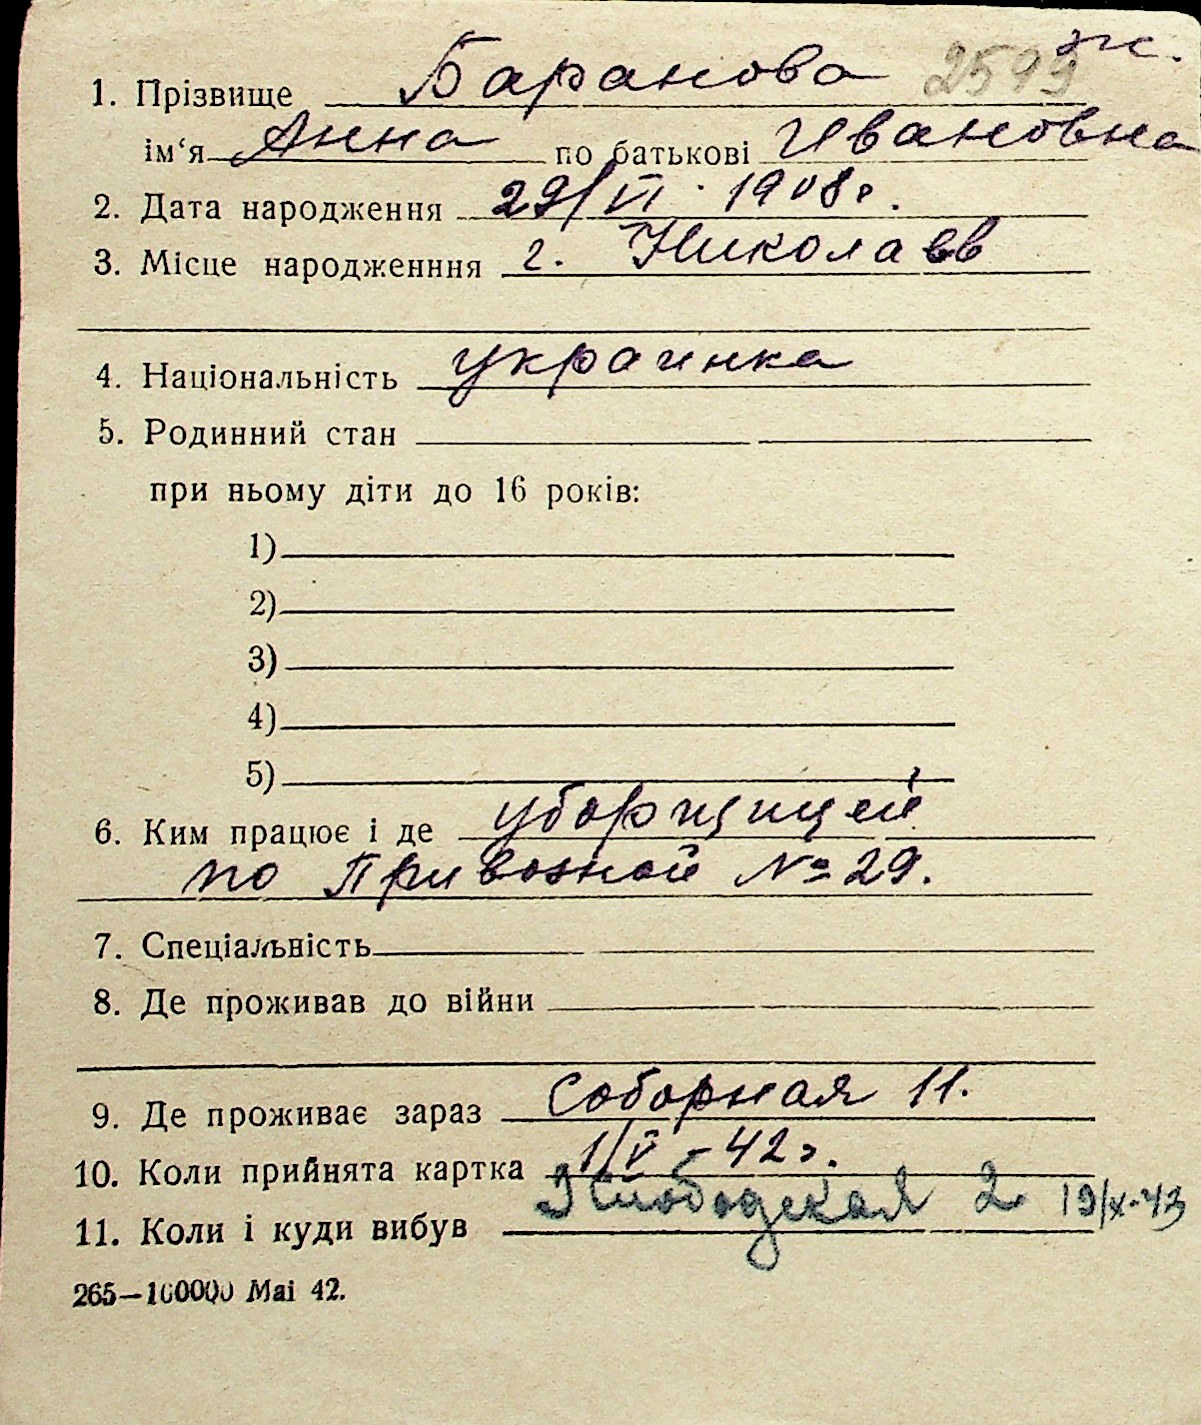 1. Прізвище Баранова 2599 ж.
ім‘я Анна по батькові Ивановна
2. Дата народження 29/VI · 1908г.
3. Місце народженння г. Николаев
4. Національність украинка
5. Родинний стан
при ньому діти до 16 років:
1)
2)
3)
4)
5)
6. Ким працює і де уборщицей
по Привозной № 29.
7. Спеціальність
8. Де проживав до війни
9. Де проживає зараз Соборная 11.
10. Коли прийнята картка 1/V - 42г.
11. Коли і куди вибув Слободская 2 19/X-43
265—100000 Маі 42.